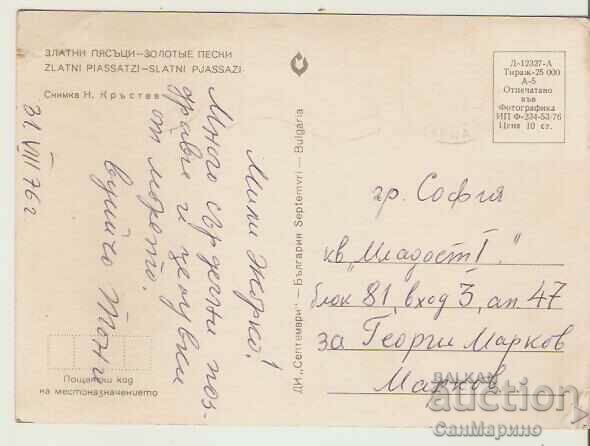 ЗЛАТНИ ПЯСЪЦИ—ЗОЛОТЫЕ ПЕСКИ
ZLATNI PIASSATZI—SLATNI PJASSAZI
Снимка Н. Кръстев
31.VIII 76 г
Мили Жорко!
Много сърдечни поз-
драви и целувки
от морето.
вуйчо Тони
Пощенски код
на местоназначението
ДИ „Септември" — България Septemvri — Bulgaria
Д-12327-А
Тираж-25 000
А-5
Отпечатано
във
Фотографика
ИП Ф-234-53-76
Цена 10 ст.
гр. София
кв. „Младост I."
блок 81, вход 3, ап. 47
за Георги Марков
Марков
BALKAN
auction
СанМарино